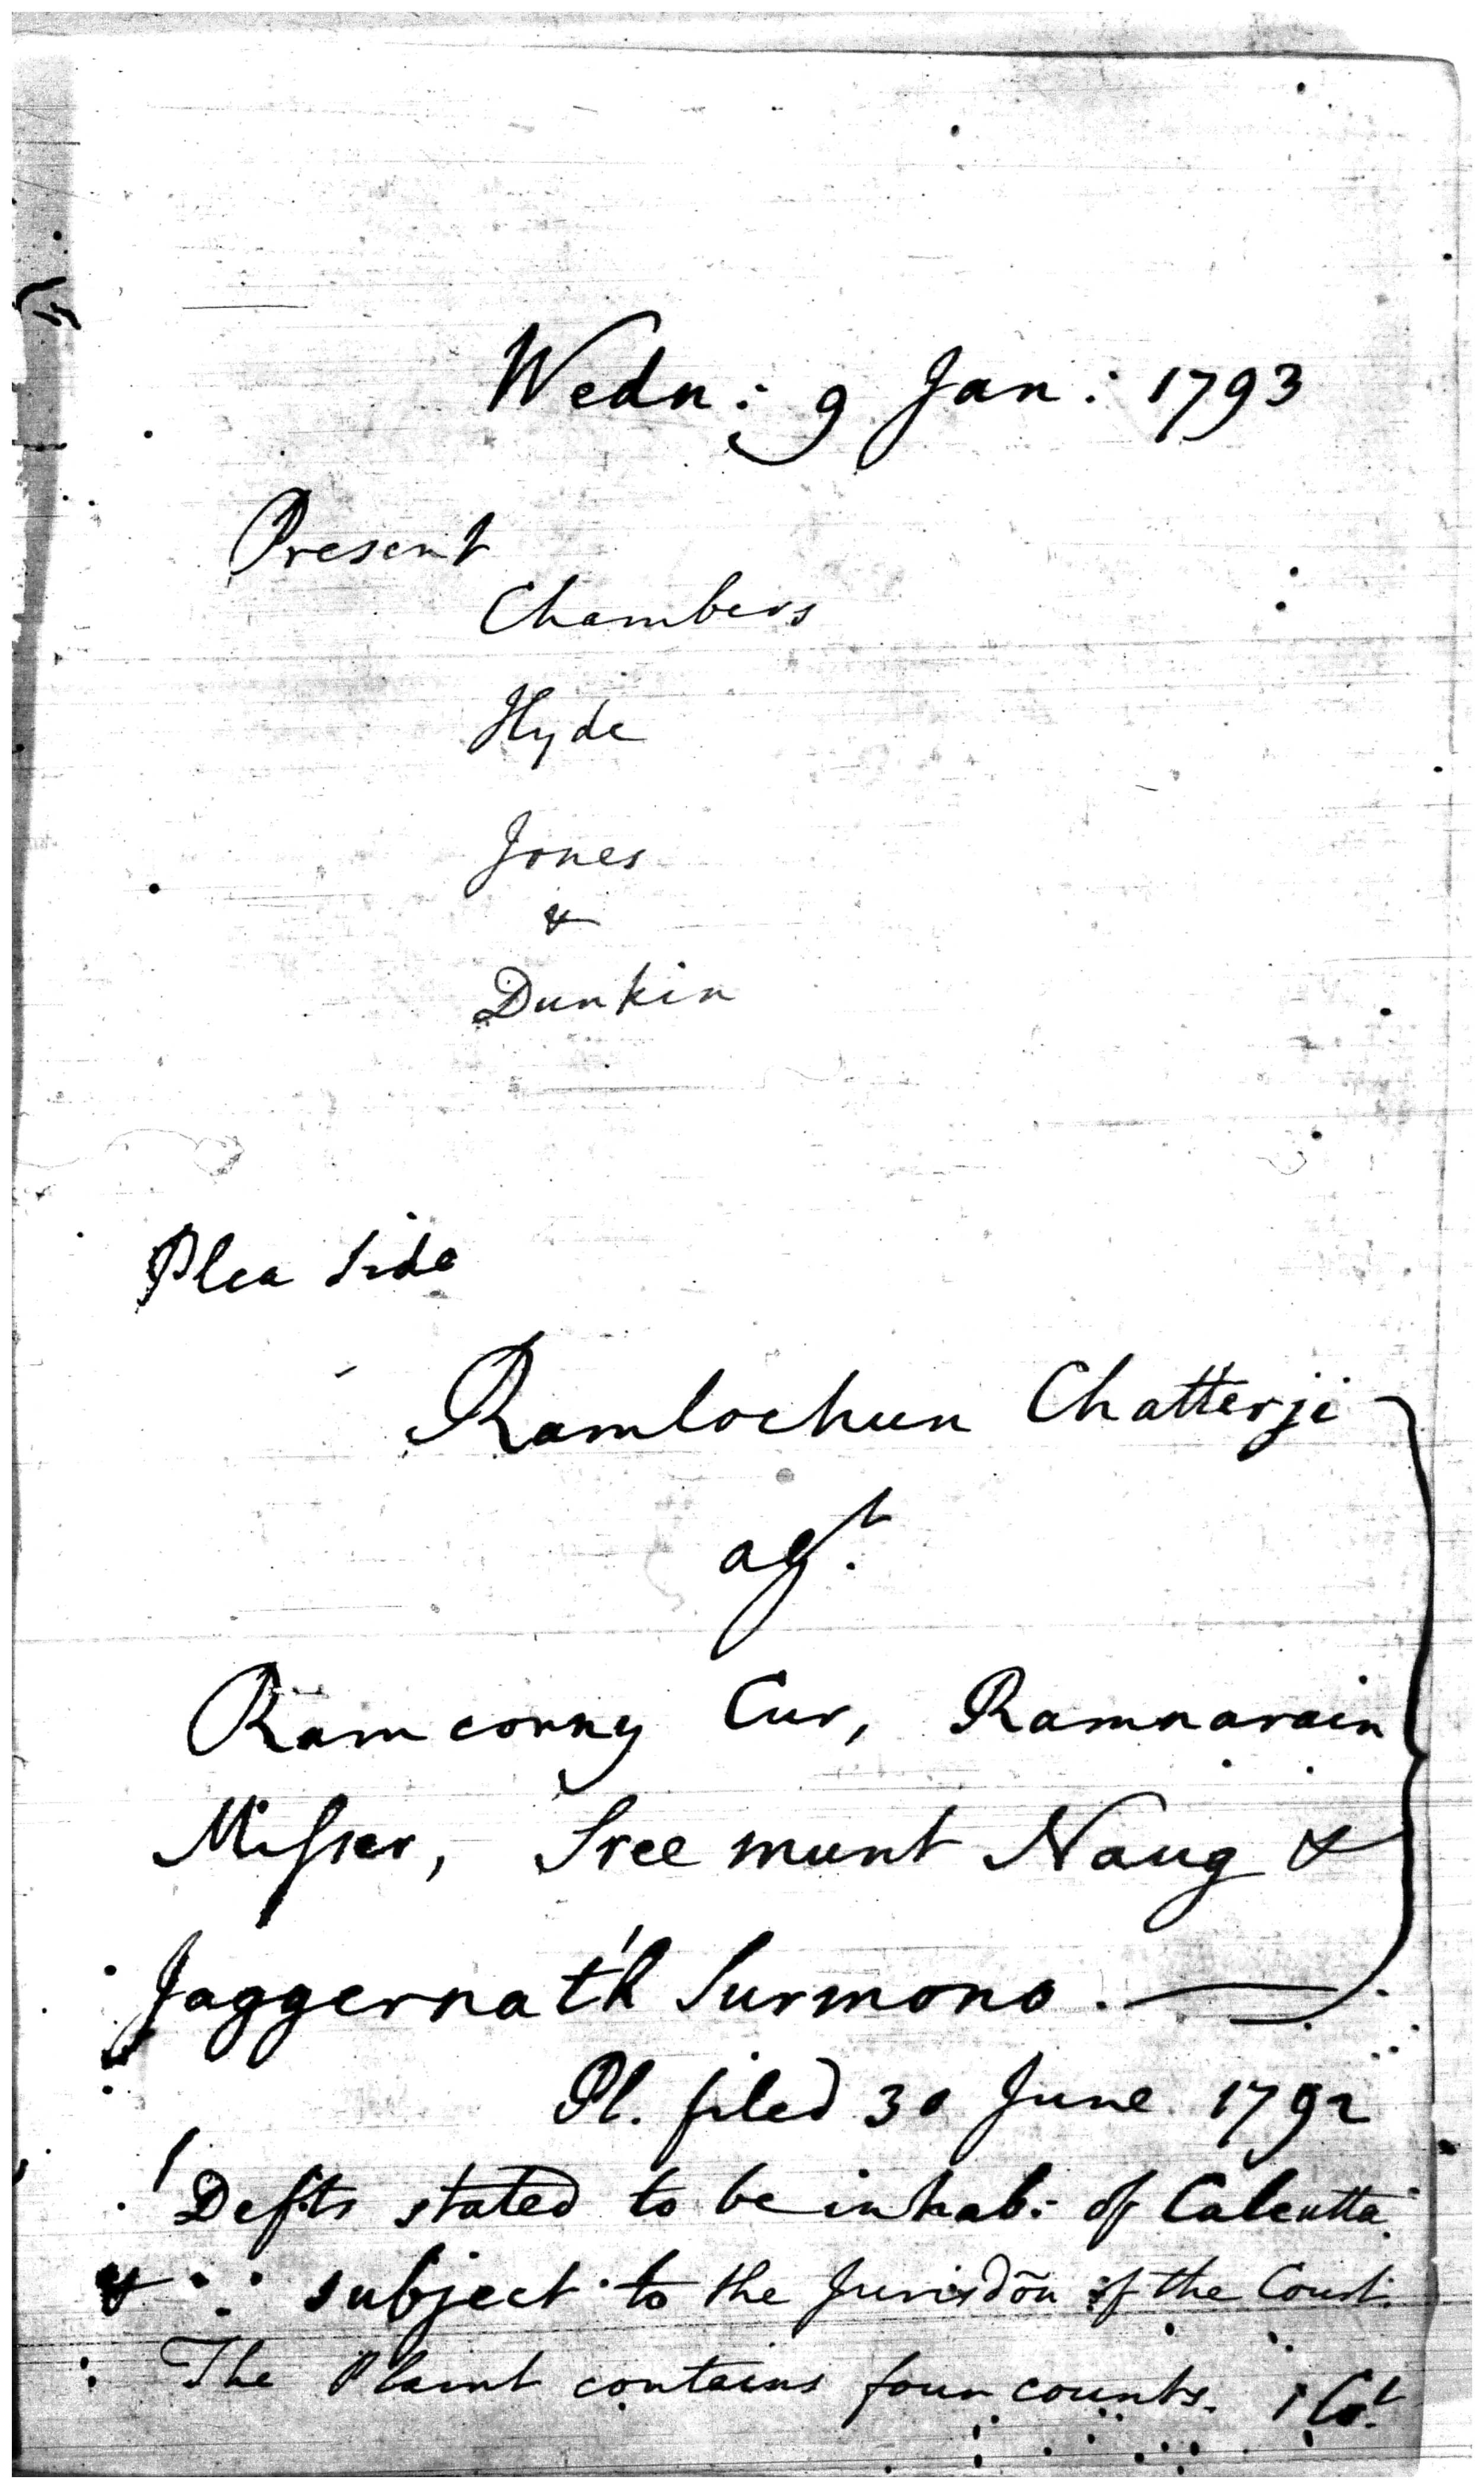 Wedn: 9 Jan: 1793
Present
Chambers
Hyde
Jones
&
Dunkin
Plea Side
Ramlochun Chatterji
agt.
Ramconny Cur, Ramnarain
Misser, Sree munt Naug &
Jaggernath Surmono.
Pl. filed 30 June 1792
Defts stated to be inhab: of Calcutta
& subject to the Jurisdõn of the Court.
The Plaint contains four counts. 1 Cot.